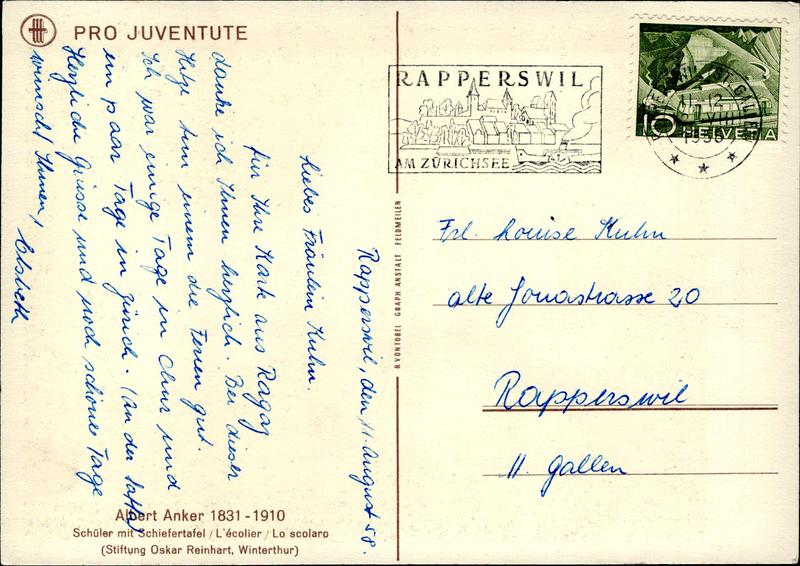 PRO JUVENTUTE
Rapperswil, den 11. August 58.
Liebes Fräulein Kuhn.
für Ihre Karte aus Ragaz
danke ich Ihnen herzlich. Bei dieser
Hitze tun einem die Ferien gut.
Ich war einige Tage in Chur und
ein paar Tage in Zürich. (An der Saffa)
Herzliche Grüsse und noch schöne Tage
wünscht Ihnen,
Elsbeth
Albert Anker 1831-1910
Schüler mit Schiefertafel / L'écolier / Lo scolaro
(Stiftung Oskar Reinhart, Winterthur)
H. VONTOBEL GRAPH. ANSTALT FELDMEILEN
RAPPERSWIL
AM ZÜRICHSEE
10
HELVETIA
Frl. Louise Kuhn
alte Jonastrasse 20
Rapperswil
St. Gallen